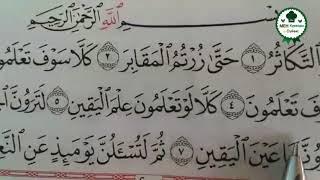 ـسْمِ ٱللَّهِ ٱلرَّحْمَٰنِ ٱلرَّحِيمِ
ٱلتَّكَاثُرُ ١ حَتَّىٰ زُرْتُمُ ٱلْمَقَابِرَ ٢ كَلَّا سَوْفَ تَعْلَمُو
فَ تَعْلَمُونَ ٤ كَلَّا لَوْ تَعْلَمُونَ عِلْمَ ٱلْيَقِينِ ٥ لَتَرَوُنَّ ٱلْـ
ـوُنَّهَا عَيْنَ ٱلْيَقِينِ ٧ ثُمَّ لَتُسْـَٔلُنَّ يَوْمَئِذٍ عَنِ ٱلنَّعـ